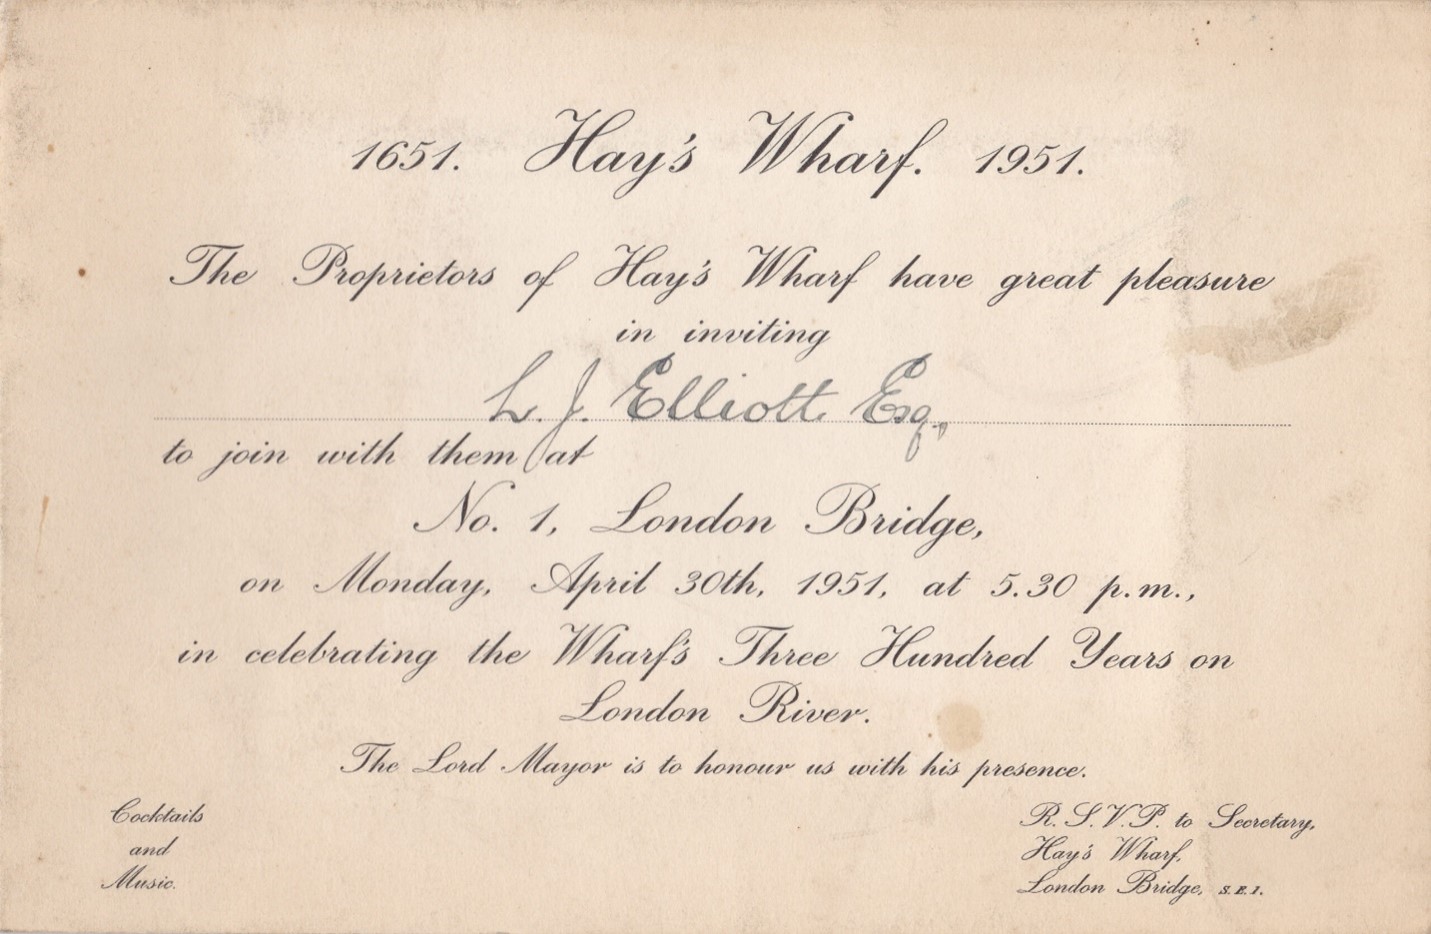 1651. Hay's Wharf. 1951.
The Proprietors of Hay's Wharf have great pleasure
in inviting
L. J. Elliott Esq.,
to join with them at
No. 1, London Bridge,
on Monday, April 30th, 1951, at 5.30 p.m.,
in celebrating the Wharf's Three Hundred Years on
London River.
The Lord Mayor is to honour us with his presence.
Cocktails
and
Music.
R.S.V.P. to Secretary,
Hay's Wharf,
London Bridge, S.E.1.